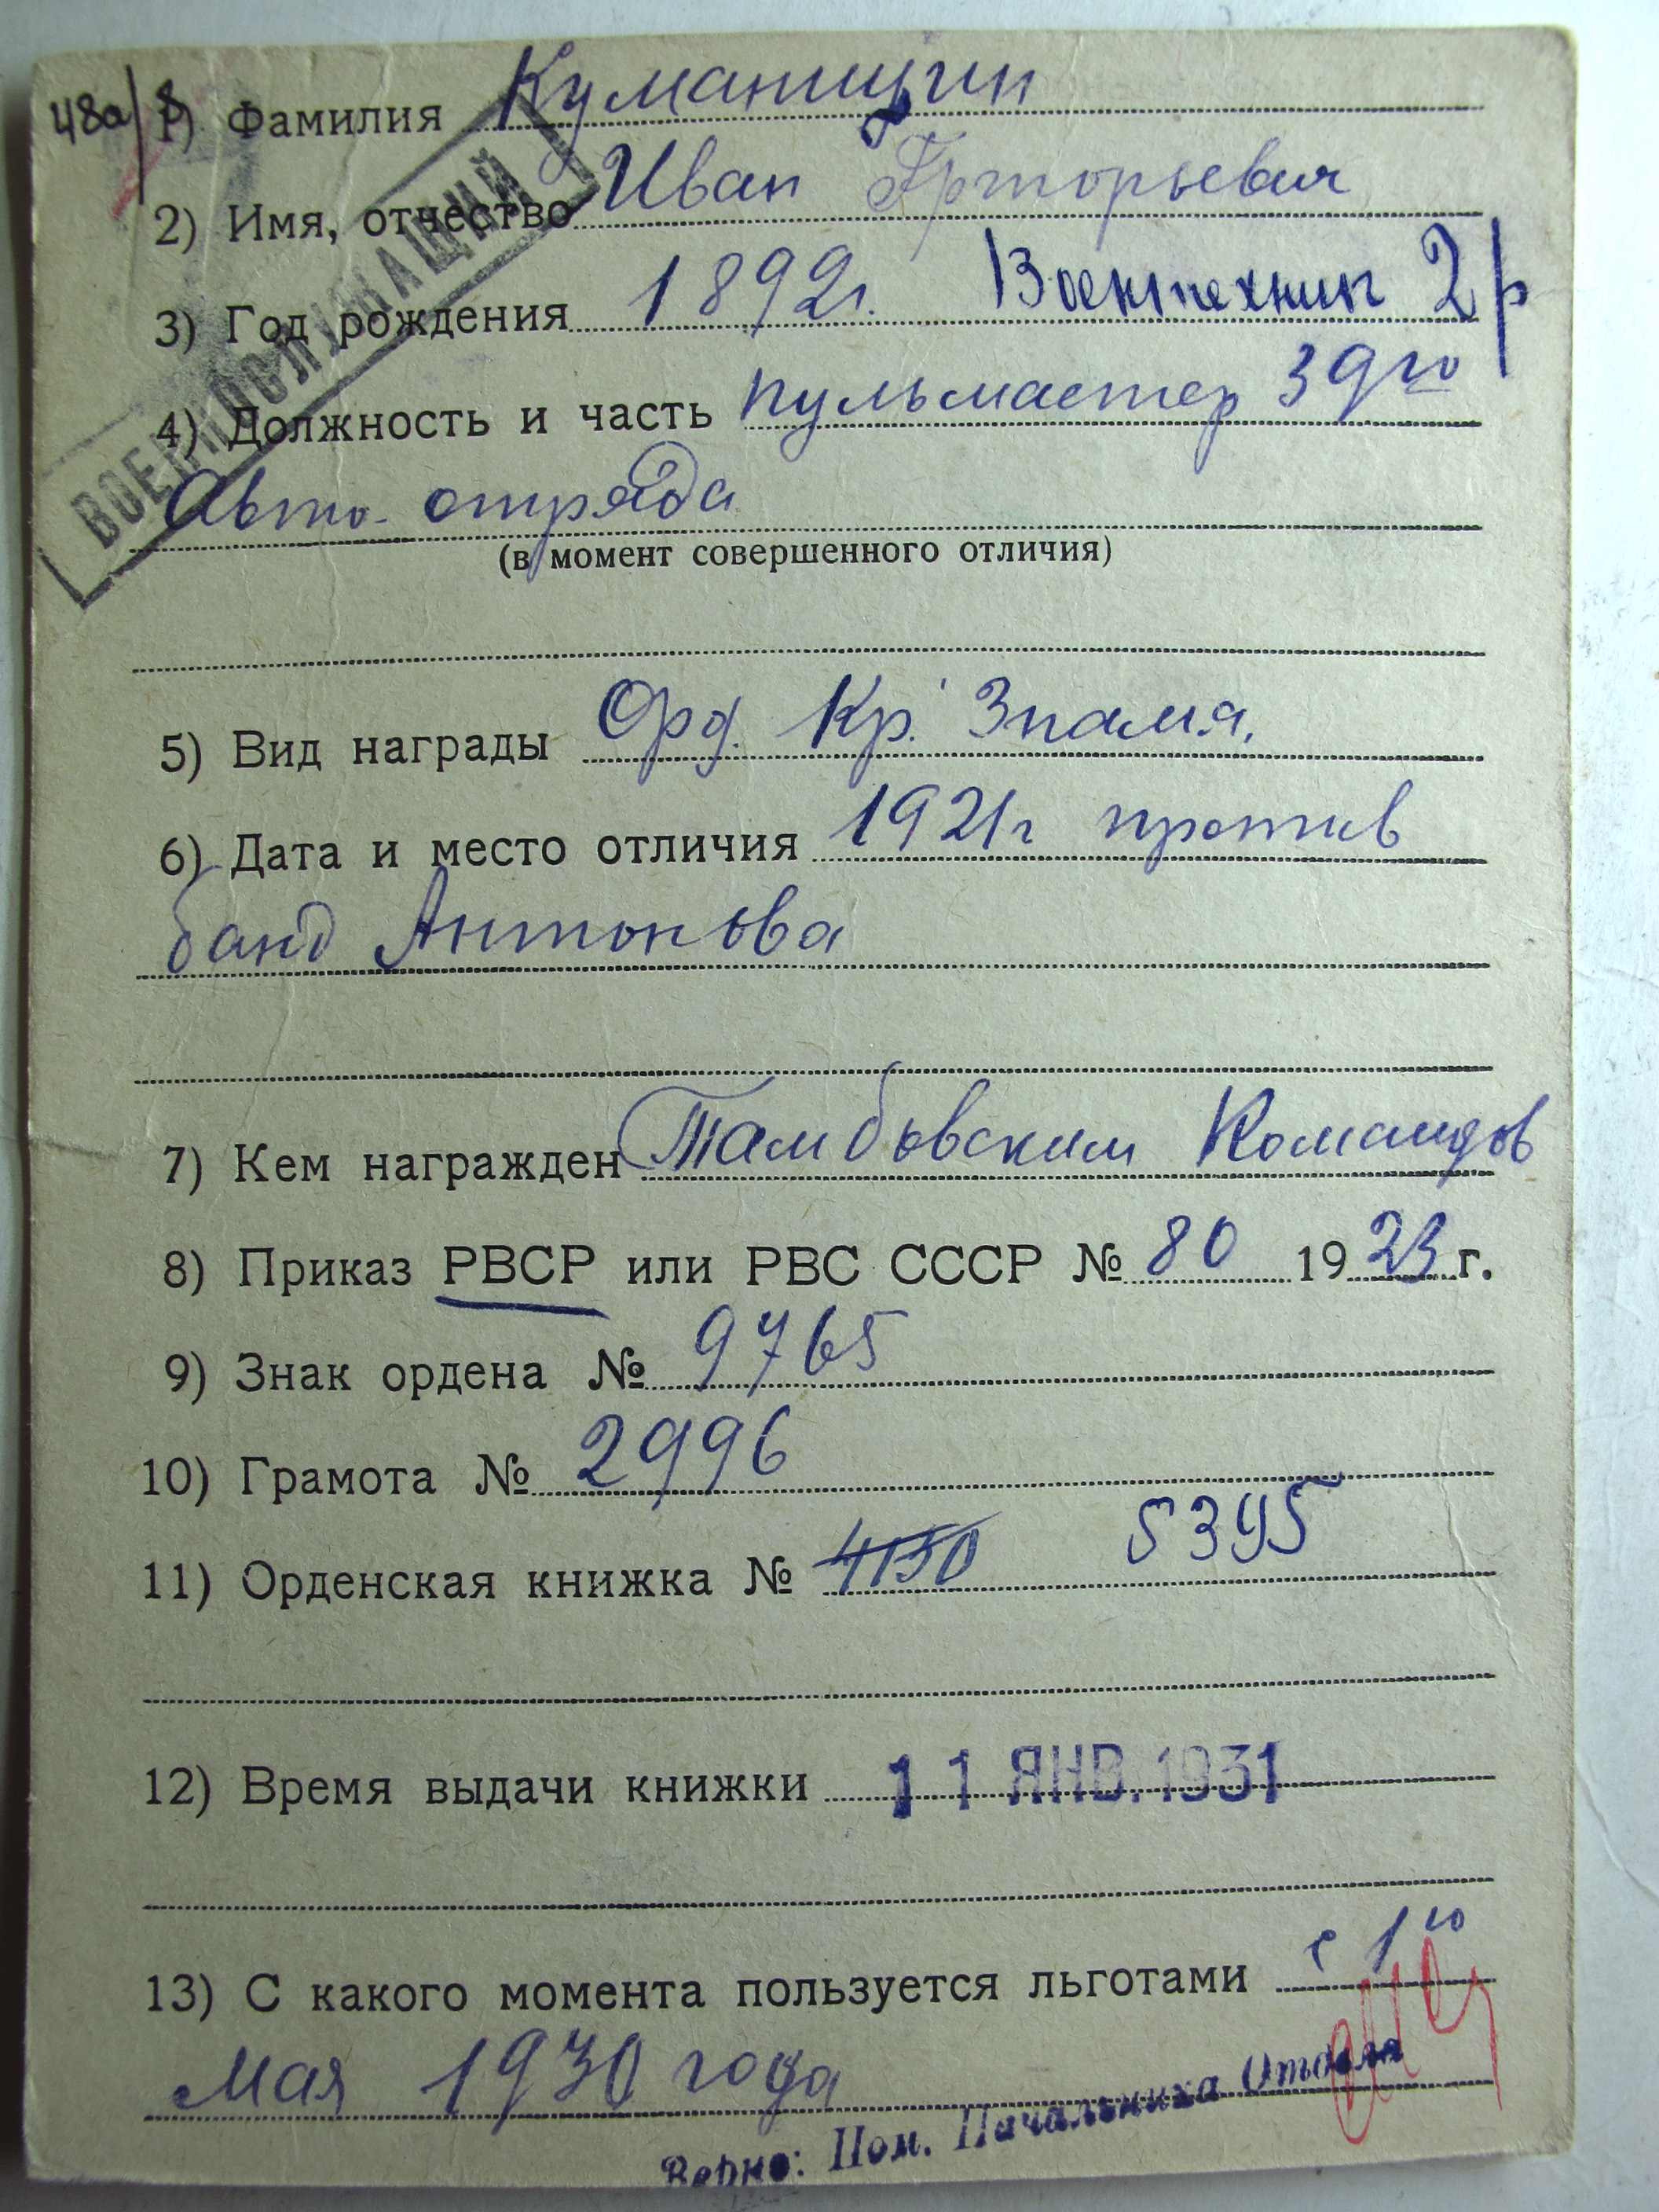 48а/8
1) Фамилия Куманицин
2) Имя, отчество Иван Григорьевич
3) Год рождения 1892г. Воентехник 2р
4) Должность и часть пульмастер 39го
Авто-отряда
(в момент совершенного отличия)
5) Вид награды Орд. Кр. Знамя.
6) Дата и место отличия 1921г против
банд Антонова
7) Кем награжден Тамбовским Командов
8) Приказ РВСР или РВС СССР № 80 1923 г.
9) Знак ордена № 9765
10) Грамота № 2996
11) Орденская книжка № 4130 5395
12) Время выдачи книжки 11 ЯНВ. 1931
13) С какого момента пользуется льготами с 1го
Мая 1930 года
Верно: Пом. Начальника Отдела
ВОЕННОСЛУЖАЩИЙ